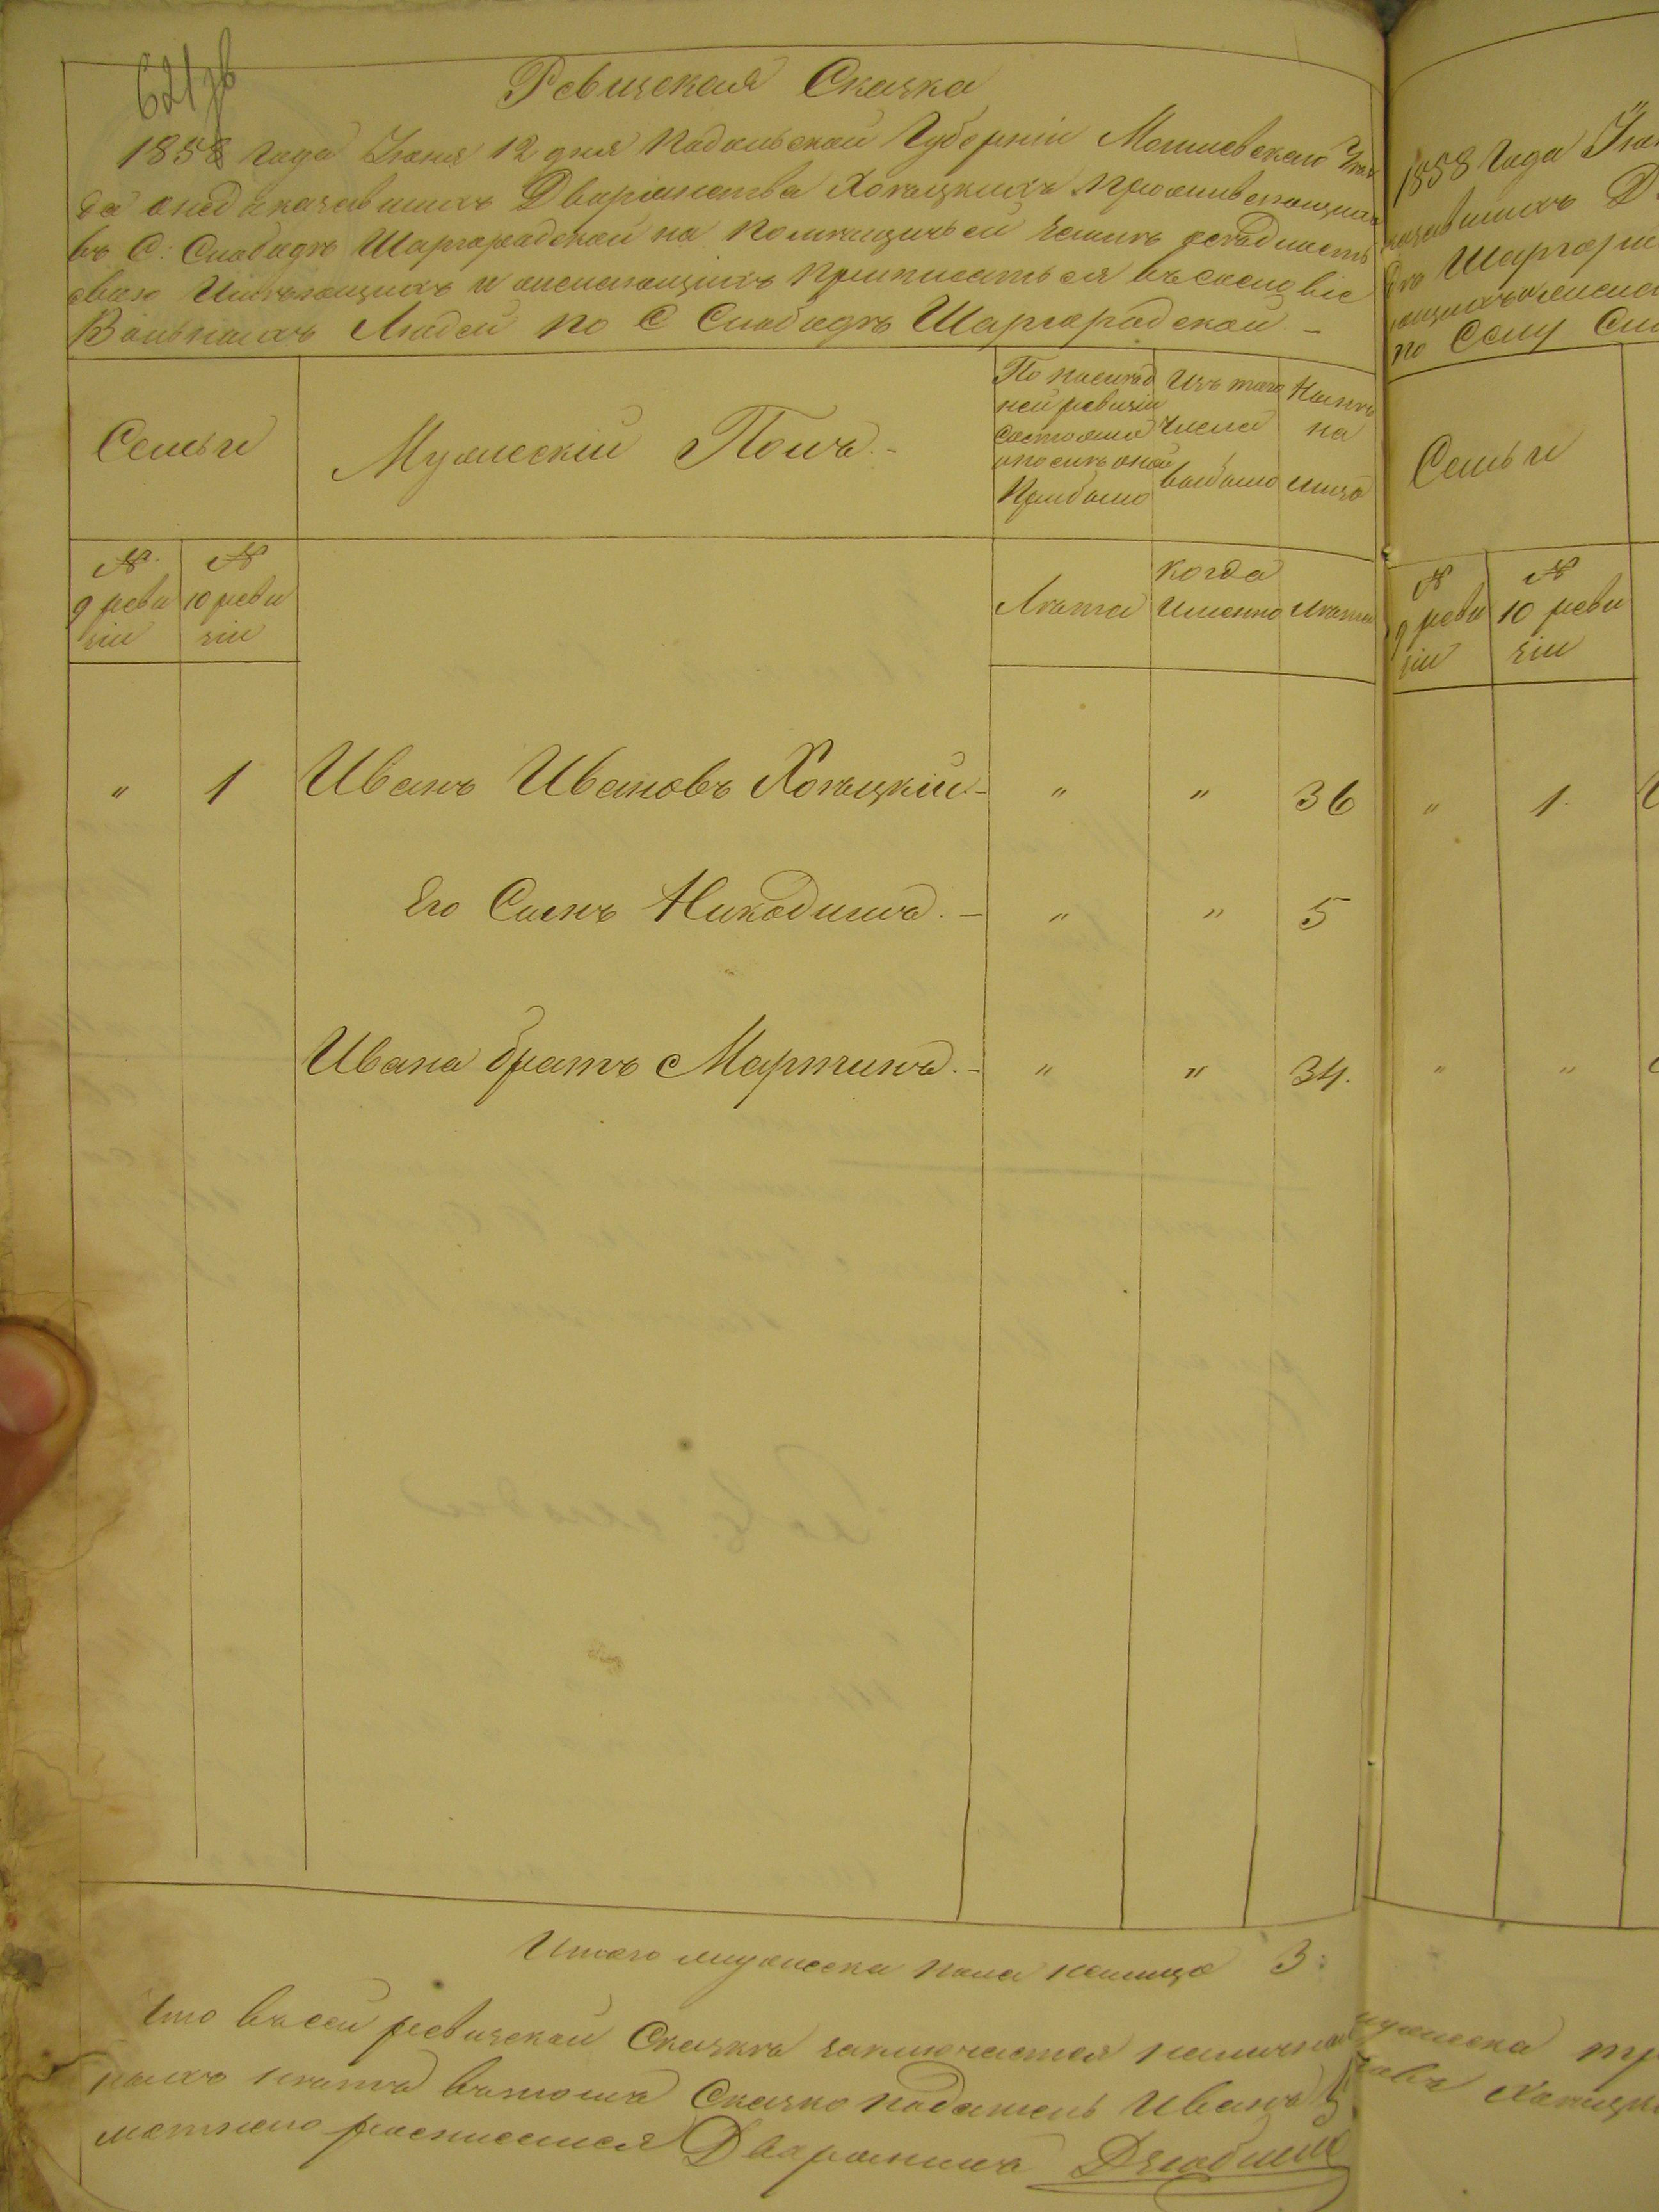 621 об
Ревизская Сказка
1858 года Іюня 12 дня Подольской Губерніи Могилевского Уѣз
да о недоказавшихъ Дворянства Хотецкихъ проживающихъ
въ С: Слободѣ Шаргородской на Помѣщичьей землѣ осѣдлость
свою Имѣющихъ и желающихъ приписаться въ сословіе
Вольныхъ Людей по С Слободѣ Шаргородской
Семьи
Мужескій Полъ.
По послѣд
ней ревизіи
состояло
и послѣ оной
Прибыло
Изъ того
числа
выбыло
Нынѣ
на
лицо
№
9 реви
зіи
№
10 реви
зіи
Лѣта
когда
именно
Лѣта
" 1 Иванъ Ивановъ Хотецкій " " 36
Его Сынъ Никодимъ. " " 5
Ивана братъ Мартинъ. " " 34.
Итого мужеска пола налицо 3:
Что въ сей ревизской Сказкѣ заключается
лѣта въ томъ Сказко податель Иванъ
росписался Дворянинъ
1858 года
Шаргоро
по Селу
Семьи
№
9 реви
зіи
№
10 реви
зіи
" 1.
" "
мужеска